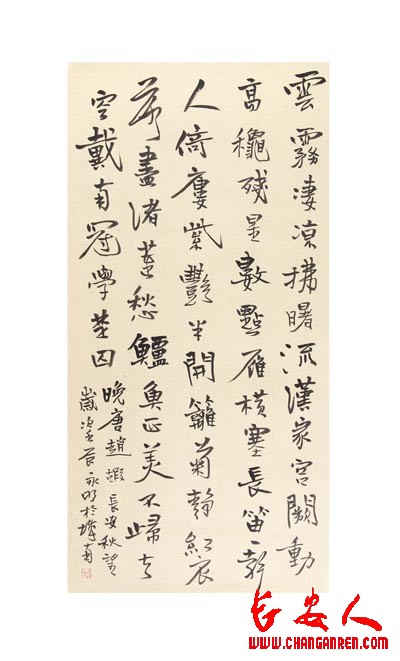 雲霧淒凉拂曙流漢家宮闕動
高穐殘星數點雁橫塞長笛一聲
人倚樓紫豔半開籬菊靜紅衣
落盡渚蓮愁鱸魚正美不歸去
空戴南冠學楚囚
晚唐趙嘏長安秋望
歲次壬 永明於 南
长安人
WWW.CHANGANREN.COM